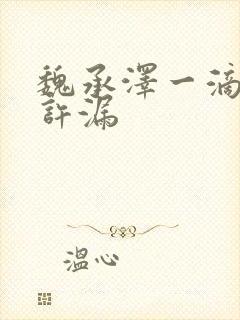 魏承澤一滴
許漏
溫心